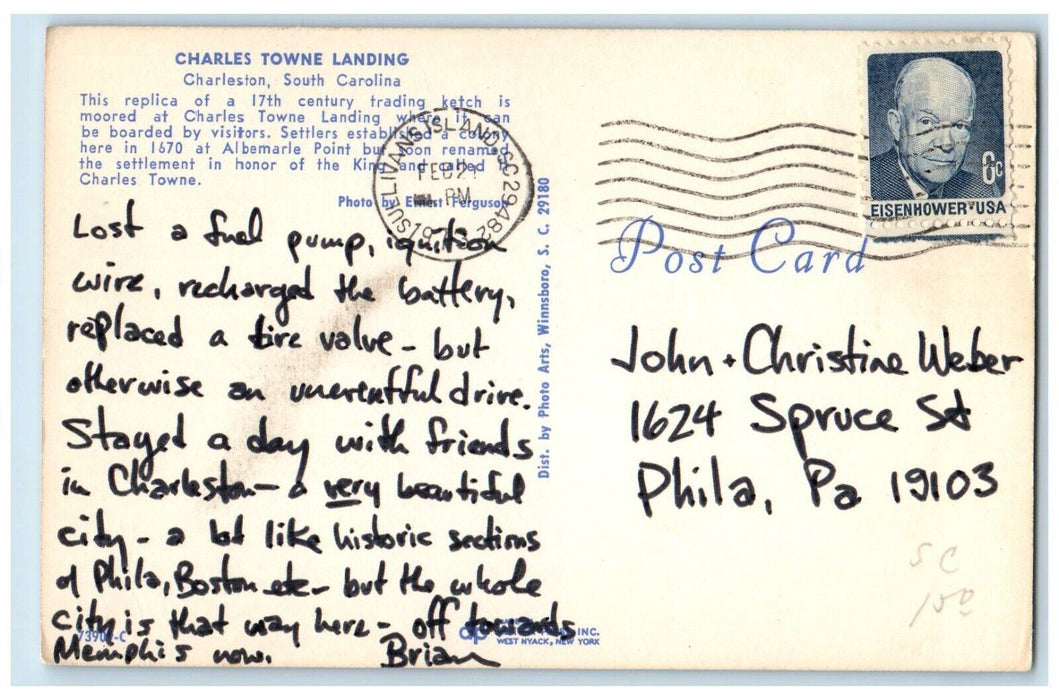 CHARLES TOWNE LANDING
Charleston, South Carolina
This replica of a 17th century trading ketch is
moored at Charles Towne Landing where it can
be boarded by visitors. Settlers established a colony
here in 1670 at Albemarle Point but soon renamed
the settlement in honor of the King and called it
Charles Towne.
Photo by Ernest Ferguson
SULLIVANS ISLAND SC 29482
FEB 2
PM
19
6c
EISENHOWER·USA
Post Card
Lost a fuel pump, ignition
wire, recharged the battery,
replaced a tire valve - but
otherwise an uneventful drive.
Stayed a day with friends
in Charleston - a very beautiful
city - a lot like historic sections
of Phila, Boston etc - but the whole
city is that way here - off towards
Memphis now. Brian
Dist. by Photo Arts, Winnsboro, S. C. 29180
John + Christine Weber
1624 Spruce St
Phila, Pa 19103
SC
1.50
INC.
WEST NYACK, NEW YORK